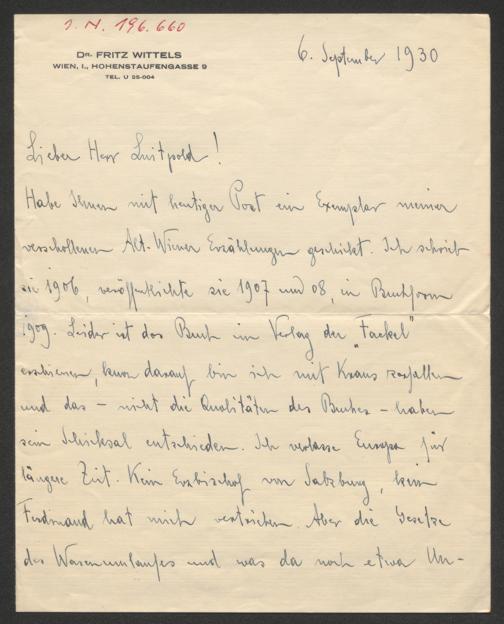 I. N. 196.660
DR. FRITZ WITTELS
WIEN, I., HOHENSTAUFENGASSE 9
TEL. U 25-004
6. September 1930
Lieber Herr Luitpold!
Habe Ihnen mit heutiger Post ein Exemplar meiner
verschollenen Alt-Wiener Erzählungen geschickt. Ich schrieb
sie 1906, veröffentlichte sie 1907 und 08, in Buchform
1909. Leider ist das Buch im Verlag der „Fackel"
erschienen, kurz darauf bin ich mit Kraus zerfallen
und das – nicht die Qualitäten des Buches – haben
sein Schicksal entschieden. Ich verlasse Europa für
längere Zeit. Kein Erzbischof von Salzburg, kein
Ferdinand hat mich vertrieben. Aber die Gesetze
des Warenumlaufes und was da noch etwa Un-